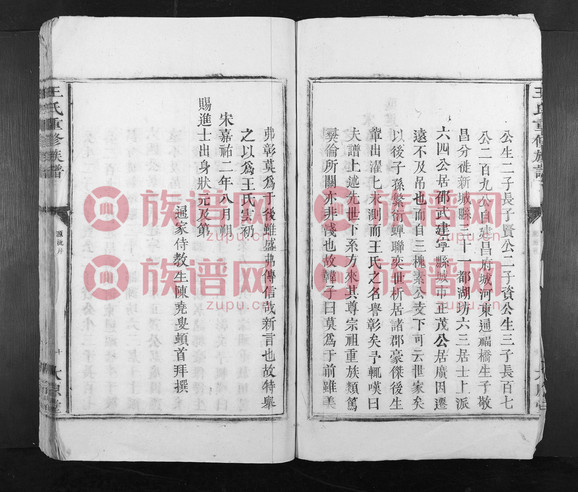 王氏重修族譜
公生二子長子賢公二子資公生三子長百七
公二百九公自建昌府城河東通福橋生子敬
昌分徙新城縣三十一都湖坊六三居士上派
六四公居邵武建寧縣城市正茂公居廣因遷
遠不及吊也而自三槐素公支下可云世家矣
以後子孫繁衍蟬聯奕世析居諸郡豪傑後生
輩出濯七未測而王氏之名譽彰矣予輒嘆曰
夫譜上述先世下系方來其尊宗祖重族類篤
彛倫所關亦非淺也故韓子曰莫為于前雖美
弗彰莫為于後雖盛弗傳信哉斯言也故特舉
之以為王氏雲礽
宋嘉祐二年八月朔
賜進士出身狀元及第
通家侍教生陳堯叟頓首拜撰
王氏重修族譜
族谱网
zupu.cn
族谱网
zupu.cn
族谱网
zupu.cn
族谱网
zupu.cn